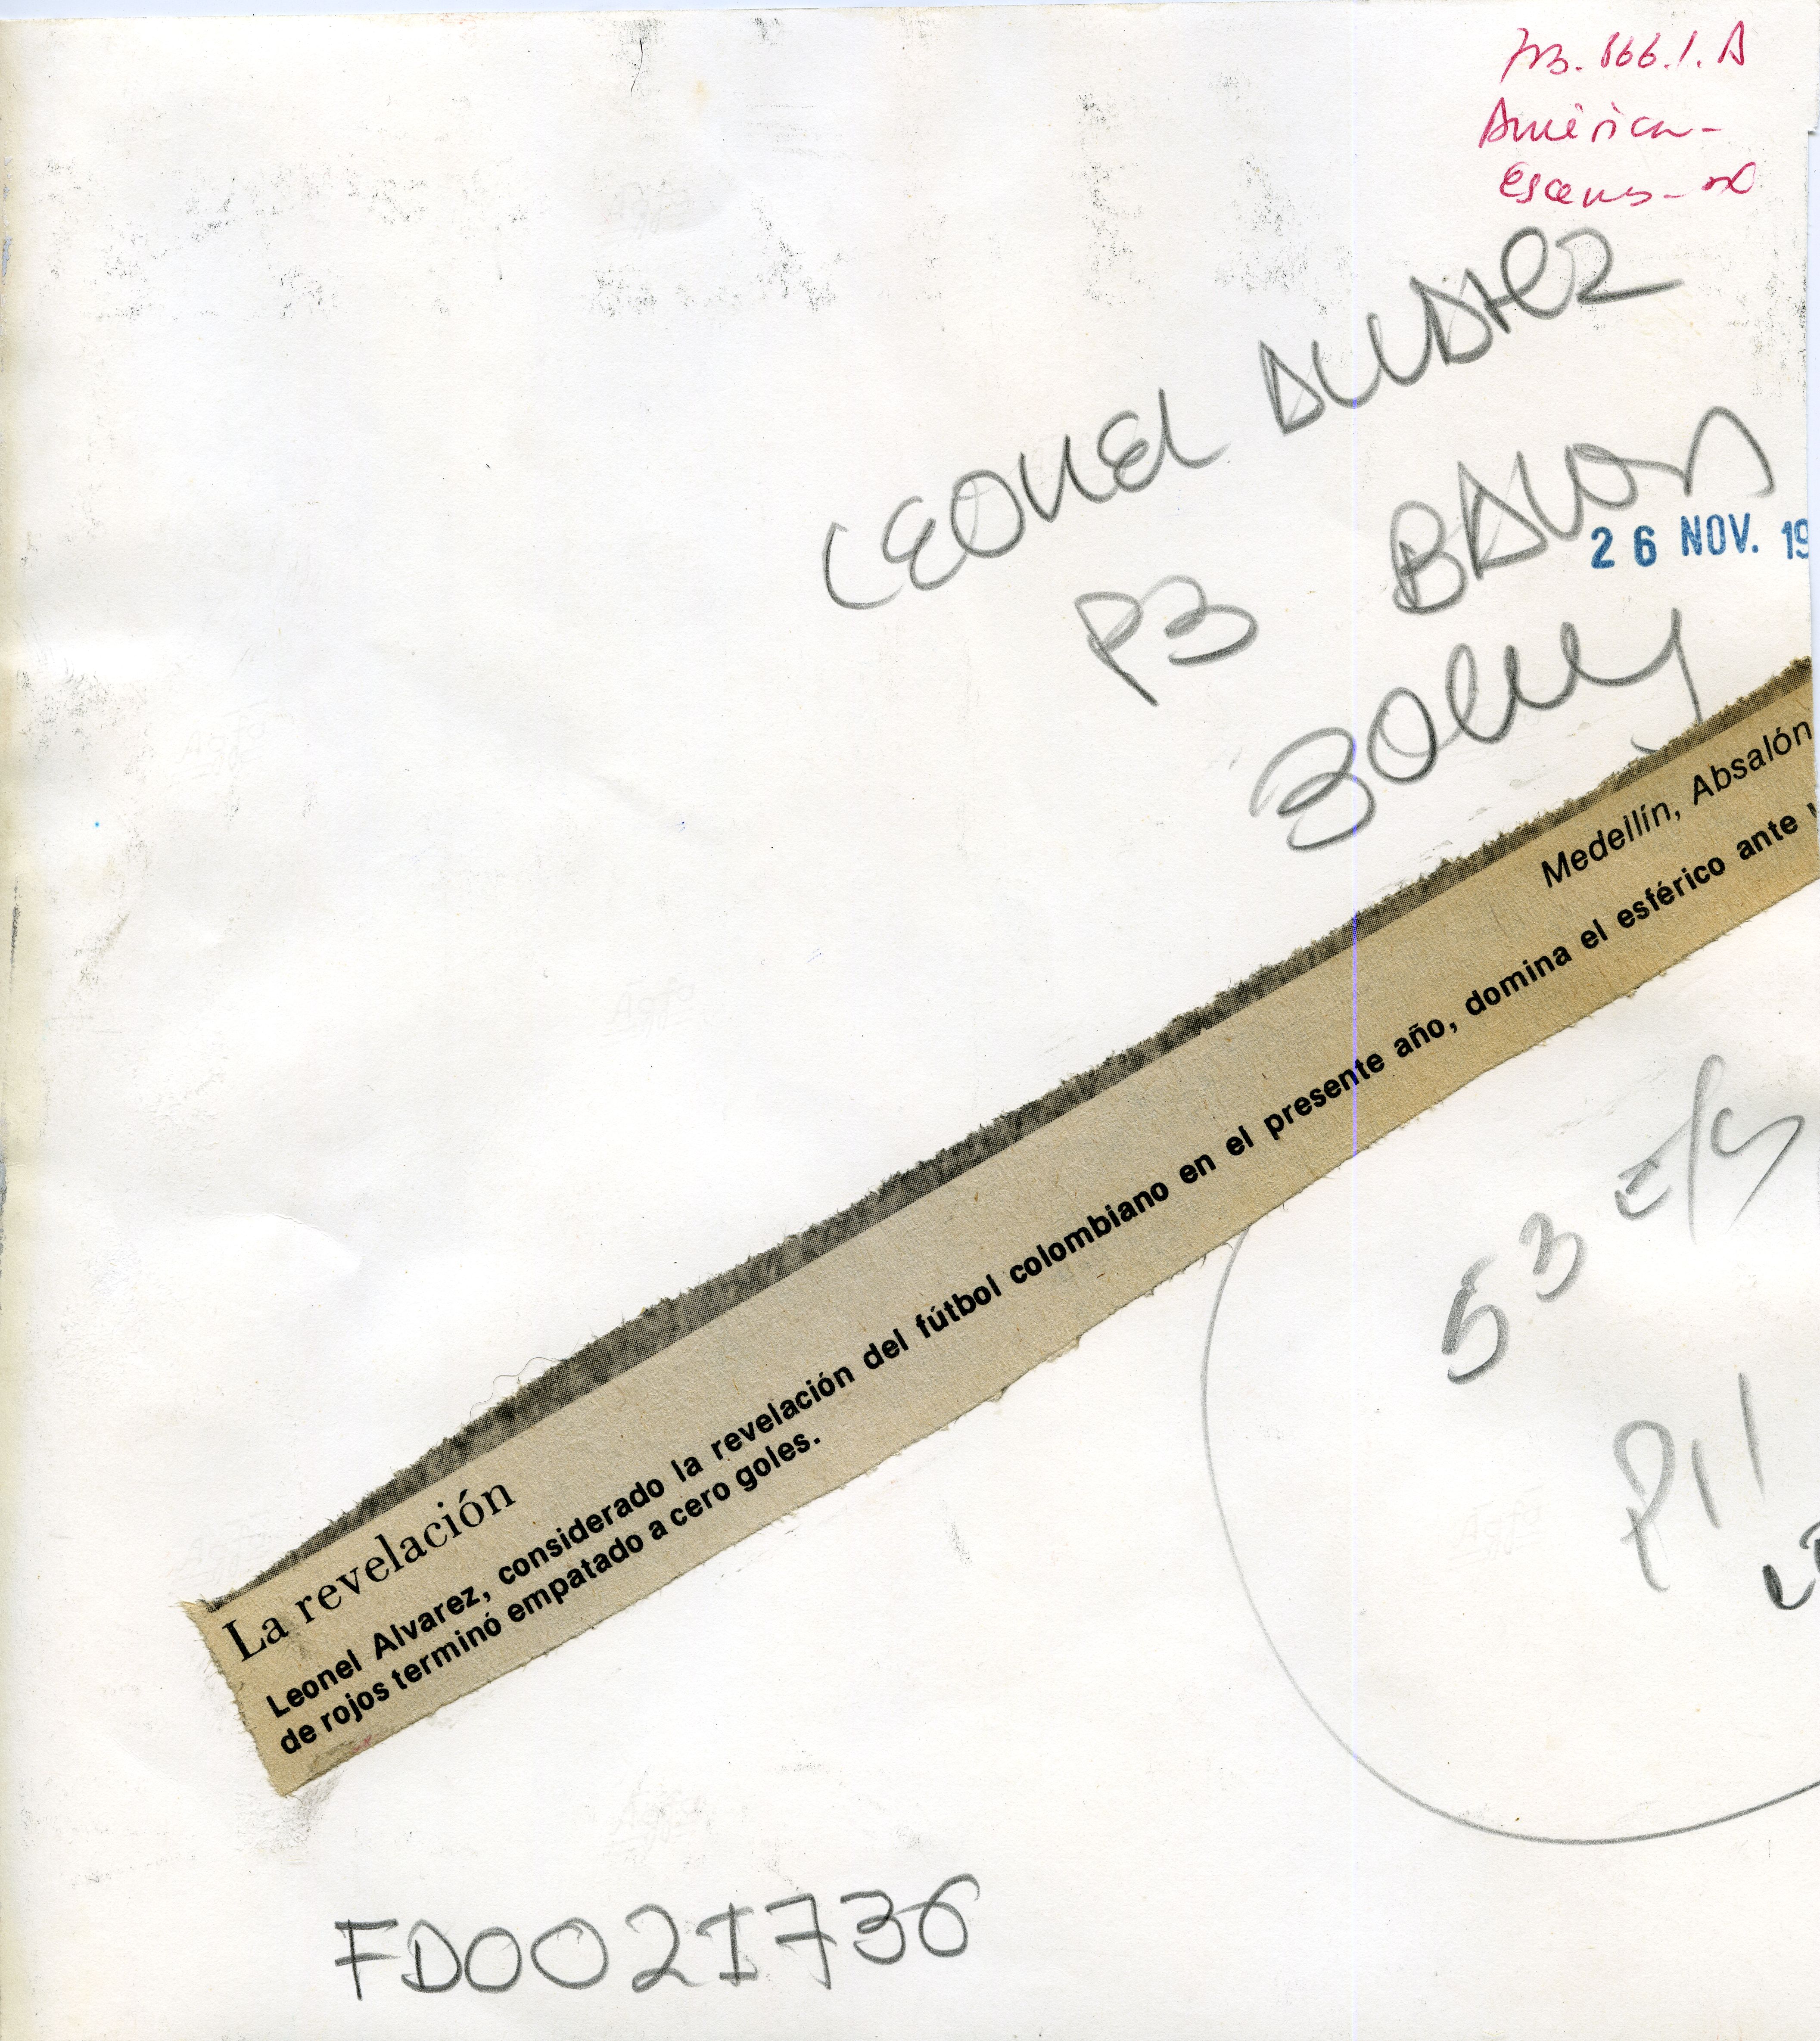 América-
LEONEL ALVAREZ
P3
26 NOV. 19
Medellín, Absalón
La revelación
Leonel Alvarez, considerado la revelación del fútbol colombiano en el presente año, domina el esférico ante
de rojos terminó empatado a cero goles.
53
P11
FD0021736